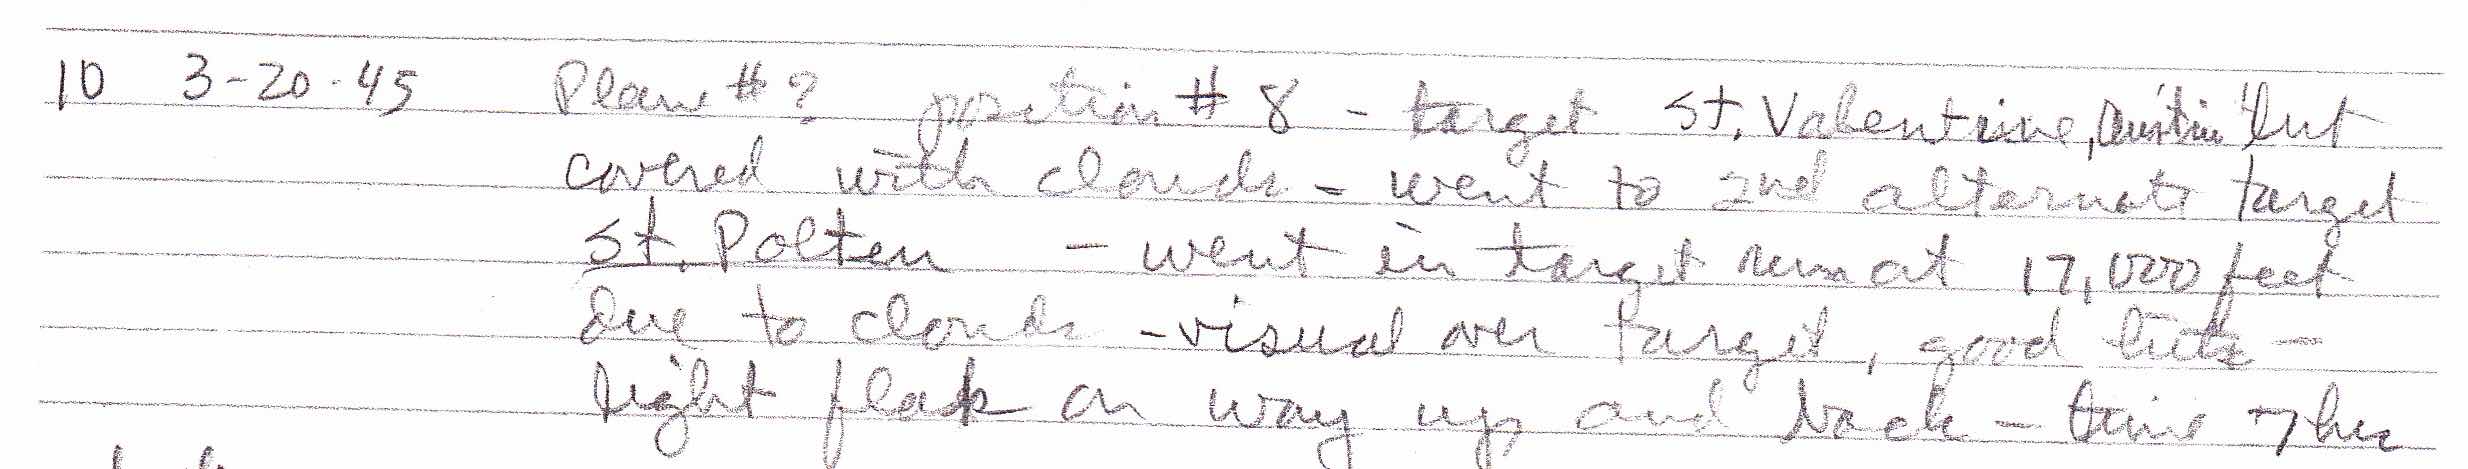 10 3-20-45 Plane #? position #8 - target St. Valentine, but
covered with clouds - went to 2nd alternate target
St. Polten - went in target run at 17,000 feet
due to clouds - visual over target, good hits -
light flak on way up and back - time 7 hrs